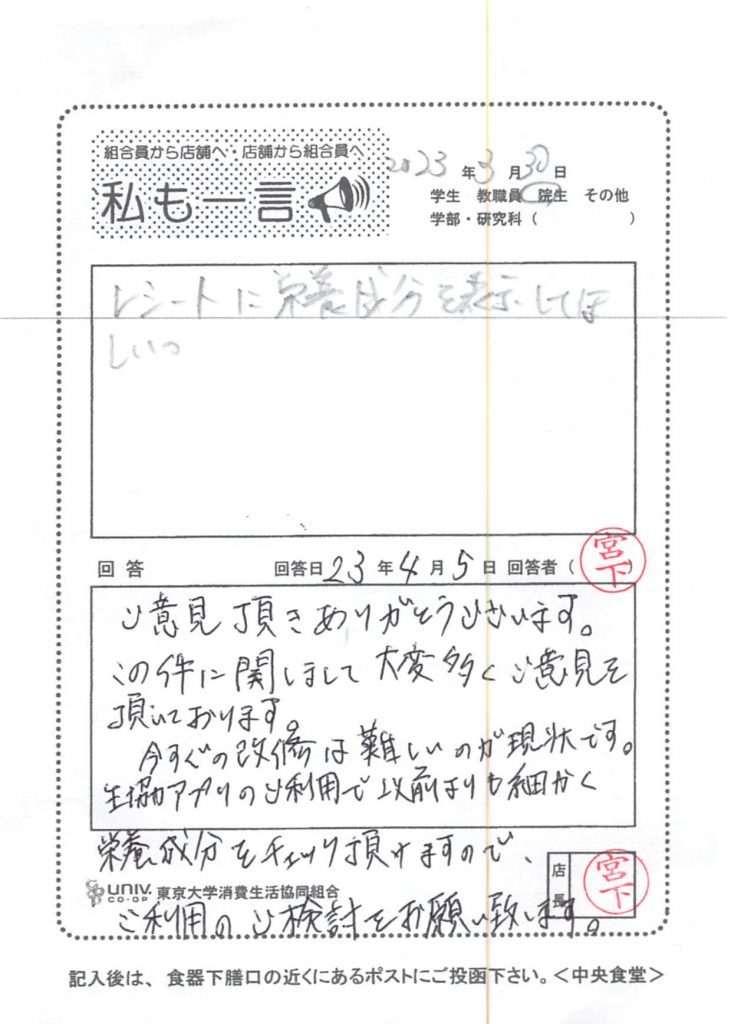 組合員から店舗へ・店舗から組合員へ
私も一言
2023年3月30日
学生 教職員 院生 その他
学部・研究科（ ）
レシートに栄養成分を表示してほ
しい。
回答 回答日23年4月5日 回答者（宮下）
ご意見頂きありがとうございます。
この件に関しまして大変多くご意見を
頂いております。
今すぐの改修は難しいのが現状です。
生協アプリのご利用で以前よりも細かく
栄養成分をチェック頂けますので、
店長 宮下
UNIV. CO-OP 東京大学消費生活協同組合
ご利用のご検討をお願い致します。
記入後は、食器下膳口の近くにあるポストにご投函下さい。＜中央食堂＞